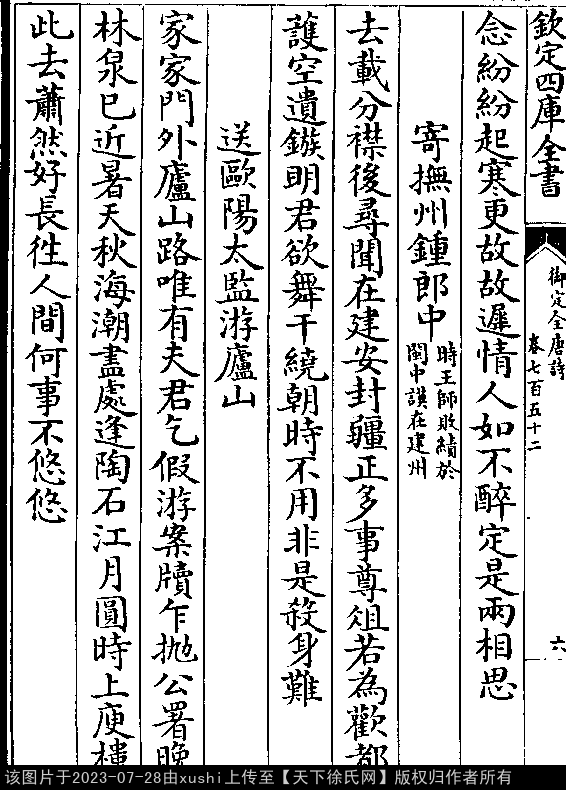 欽定四庫全書
御定全唐詩
卷七百五十二
六
念紛紛起寒更故故遲情人如不醉定是兩相思
寄撫州鍾郎中
時王師敗績於
閩中謨在建州
去載分襟後尋聞在建安封疆正多事尊俎若為歡都
護空遺鏃明君欲舞干繞朝時不用非是殺身難
送歐陽太監游廬山
家家門外廬山路唯有夫君乞假游案牘乍拋公署晚
林泉已近暑天秋海潮盡處逢陶石江月圓時上庾樓
此去蕭然好長往人間何事不悠悠
该图片于2023-07-28由xushi上传至【天下徐氏网】版权归作者所有